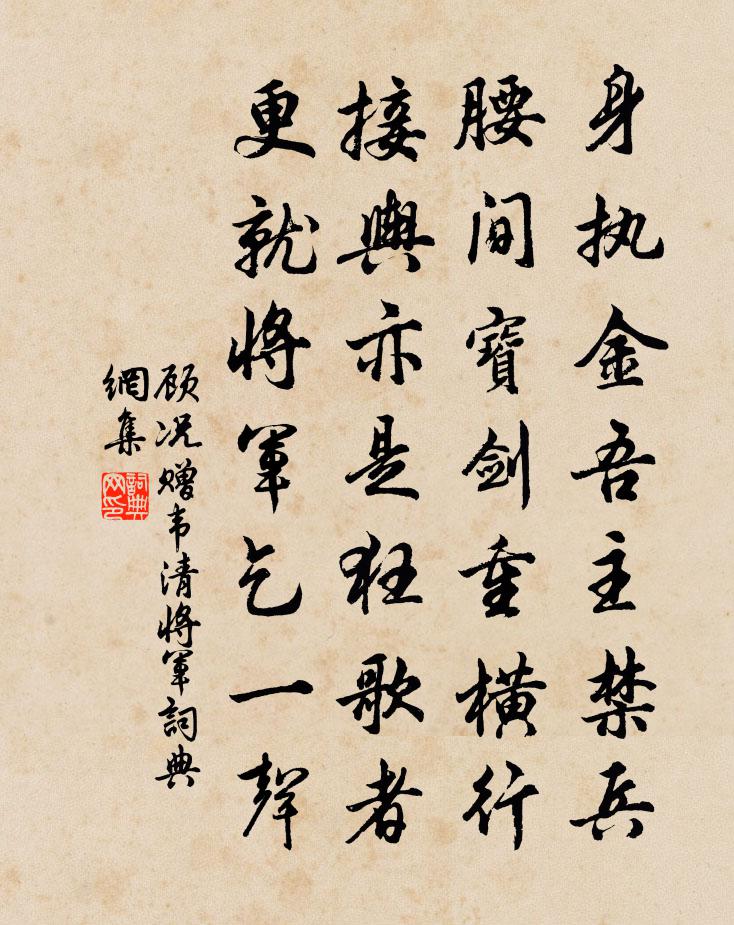 身执金吾主禁兵
腰间寶剑重横行
接輿亦是狂歌者
更就将軍乞一聲
顾况赠韦清将軍詞典
網集
詞典
网印